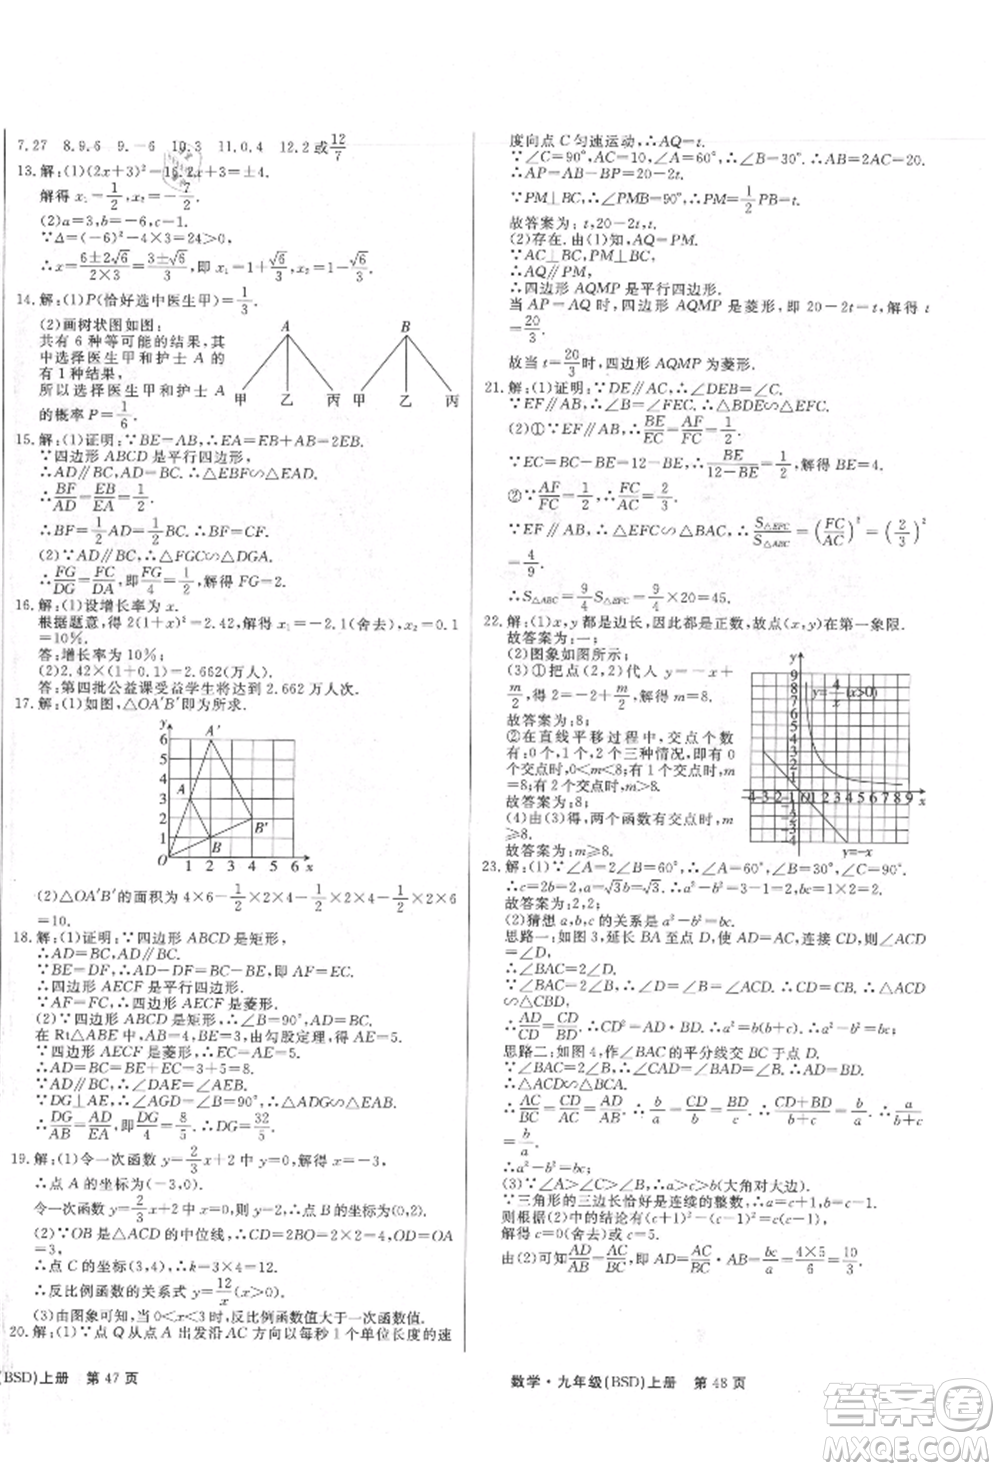 7.27 8.9.6 9.-6 10.3 11.0.4 12.2或12/7
13.解:(1)(2x+3)²=16.2x+3=±4.
解得 x₁=1/2,x₂=-7/2.
(2)a=3,b=-6,c=1.
∵Δ=(-6)²-4×3=24>0.
∴x=(6±2√6)/6=(3±√6)/3,即 x₁=1+√6/3,x₂=1-√6/3.
14.解:(1)P(恰好选中医生甲)=1/3.
(2)画树状图如图:
共有 6 种等可能的结果,其
中选择医生甲和护士 A 的
有 1 种结果,
所以选择医生甲和护士 A
的概率 P=1/6.
A B
甲 乙 丙 甲 乙 丙
15.解:(1)证明:∵BE=AB,∴EA=EB+AB=2EB.
∵四边形 ABCD 是平行四边形,
∴AD∥BC,AD=BC.∴△EBF∽△EAD.
∴BF/AD=EB/EA=1/2.
∴BF=1/2AD=1/2BC.∴BF=CF.
(2)∵AD∥BC,∴△FGC∽△DGA.
∴FG/DG=FC/DA,即FG/4=1/2,解得 FG=2.
16.解:(1)设增长率为 x.
根据题意,得 2(1+x)²=2.42,解得 x₁=-2.1(舍去),x₂=0.1
=10%.
答:增长率为 10%.
(2)2.42×(1+0.1)=2.662(万人).
答:第四批公益课受益学生将达到 2.662 万人次.
17.解:(1)如图,△OA′B′即为所求.
y A′
6
5
4
3 A
2 B′
1 B
O 1 2 3 4 5 6 x
(2)△OA′B′的面积为 4×6-1/2×2×4-1/2×2×4-1/2×2×6
=10.
18.解:(1)证明:∵四边形 ABCD 是矩形,
∴AD∥BC,AD=BC.
∵BE=DF,∴AD-DF=BC-BE,即 AF=EC.
∴四边形 AECF 是平行四边形.
∵AF=CF,∴四边形 AECF 是菱形.
(2)∵四边形 ABCD 是矩形,∴∠B=90°,AD∥BC.
在 Rt△ABE 中,AB=4,BE=3,由勾股定理,得 AE=5.
∵四边形 AECF 是菱形,∴EC=AE=5.
∴AD=BC=BE+EC=3+5=8.
∵AD∥BC,∴∠DAE=∠AEB.
∵DG⊥AE,∴∠AGD=∠B=90°,∴△ADG∽△EAB.
∴DG/AB=AD/EA,即DG/4=8/5,∴DG=32/5.
19.解:(1)令一次函数 y=2/3x+2中 y=0,解得 x=-3,
∴点 A 的坐标为(-3,0).
令一次函数 y=2/3x+2 中 x=0,则 y=2,∴点 B 的坐标为(0,2).
(2)∵OB 是△ACD 的中位线,∴CD=2BO=4,OD=OA
=3,
∴点 C 的坐标为(3,4),∴k=3×4=12.
∴反比例函数的关系式 y=12/x(x>0).
(3)由图象可知,当 0<x<3时,反比例函数值大于一次函数值.
20.解:(1)∵点 Q 从点 A 出发沿 AC 方向以每秒 1 个单位长度的速
(BSD)上册 第 47 页
度向点 C 匀速运动,∴AQ=t.
∵∠C=90°,∠A=60°,∴∠B=30°,∴AB=2AC=20.
∴AP=AB-BP=20-2t.
∵PM⊥BC,∴∠PMB=90°,∴PM=1/2PB=t.
故答案为:t,20-2t,t.
(2)存在.由(1)知,AQ=PM.
∵AC⊥BC,PM⊥BC,∴AQ∥PM.
∴四边形 AQMP 是平行四边形.
当 AP=AQ 时,四边形 AQMP 是菱形,即 20-2t=t,解得 t
=20/3.
故当 t=20/3时,四边形 AQMP 为菱形.
21.解:(1)证明:∵DE∥AC,∴∠DEB=∠C.
∵EF∥AB,∴∠B=∠FEC,∴△BDE∽△EFC.
(2)①∵EF∥AB,∴BE/EC=AF/FC=1/2.
∵EC=BC-BE=12-BE,∴BE/(12-BE)=1/2,解得 BE=4.
②∵AF/FC=1/2,∴FC/AC=2/3.
∵EF∥AB,∴△EFC∽△BAC,∴S△EFC/S△ABC=(FC/AC)²=(2/3)²
=4/9.
∴S△ABC=9/4S△EFC=9/4×20=45.
22.解:(1)x,y 都是边长,因此都是正数,故点(x,y)在第一象限.
故答案为:一;
(2)图象如图所示:
(3)①把点(2,2)代入 y=-x+
m/2,得 2=-2+m/2,解得 m=8.
故答案为:8;
②在直线平移过程中,交点个数
有:0 个、1 个、2 个三种情况,即有
0 个交点时,0<m<8;有 1 个交点
时,m=8;有 2 个交点时,m>8.
故答案为:m=8;
(4)由(3)得,两个函数有交点时,m
≥8.
故答案为:m≥8.
y
9
8
7
6
5
4
3
2
1
y=4/x(x>0)
-4-3-2-1O 1 2 3 4 5 6 7 8 9 x
y=-x
23.解:(1)∵∠A=2∠B=60°,∴∠A=60°,∠B=30°,∠C=90°.
∴c=2b=2,a=√3b=√3.∴c=2,b=1.
故答案为:2,2;
(2)猜想 a,b,c 的关系是 a²-b²=bc.
思路一:如图 3,延长 BA 至点 D,使 AD=AC,连接 CD,则∠ACD
=∠D.
∴∠BAC=2∠D.
∵∠BAC=2∠B,∴∠B=∠D=∠ACD,∴CD=CB=a,△ACD
∽△CBD.
∴AD/CD=CD/BD.∴CD²=AD·BD.∴a²=b(b+c).∴a²-b²=bc.
思路二:如图 4,作∠BAC的平分线交 BC 于点 D.
∵∠BAC=2∠B,∴∠B=∠CAD=∠BAD,∴AD=BD.
∴△ACD∽△BCA.
∴AC/BC=CD/AC=AD/AB.∴b/a=CD/b=BD/c.∴b/a=(CD+BD)/(b+c).∴a/(b+c)=
b/a.
∴a²-b²=bc.
(3)∵∠BAC=2∠ABC,∴a>b,∠ACB=2∠BAC.∴c>a>b(大角对大边).
∵三角形的三边长恰好是连续的整数,
由(2)可知AD/AB=AB/BC,即 AD=AB/BC·AB=(4×5)/6=10/3.
数学·九年级(BSD)上册 第 48 页
答案圈
MXQE.COM